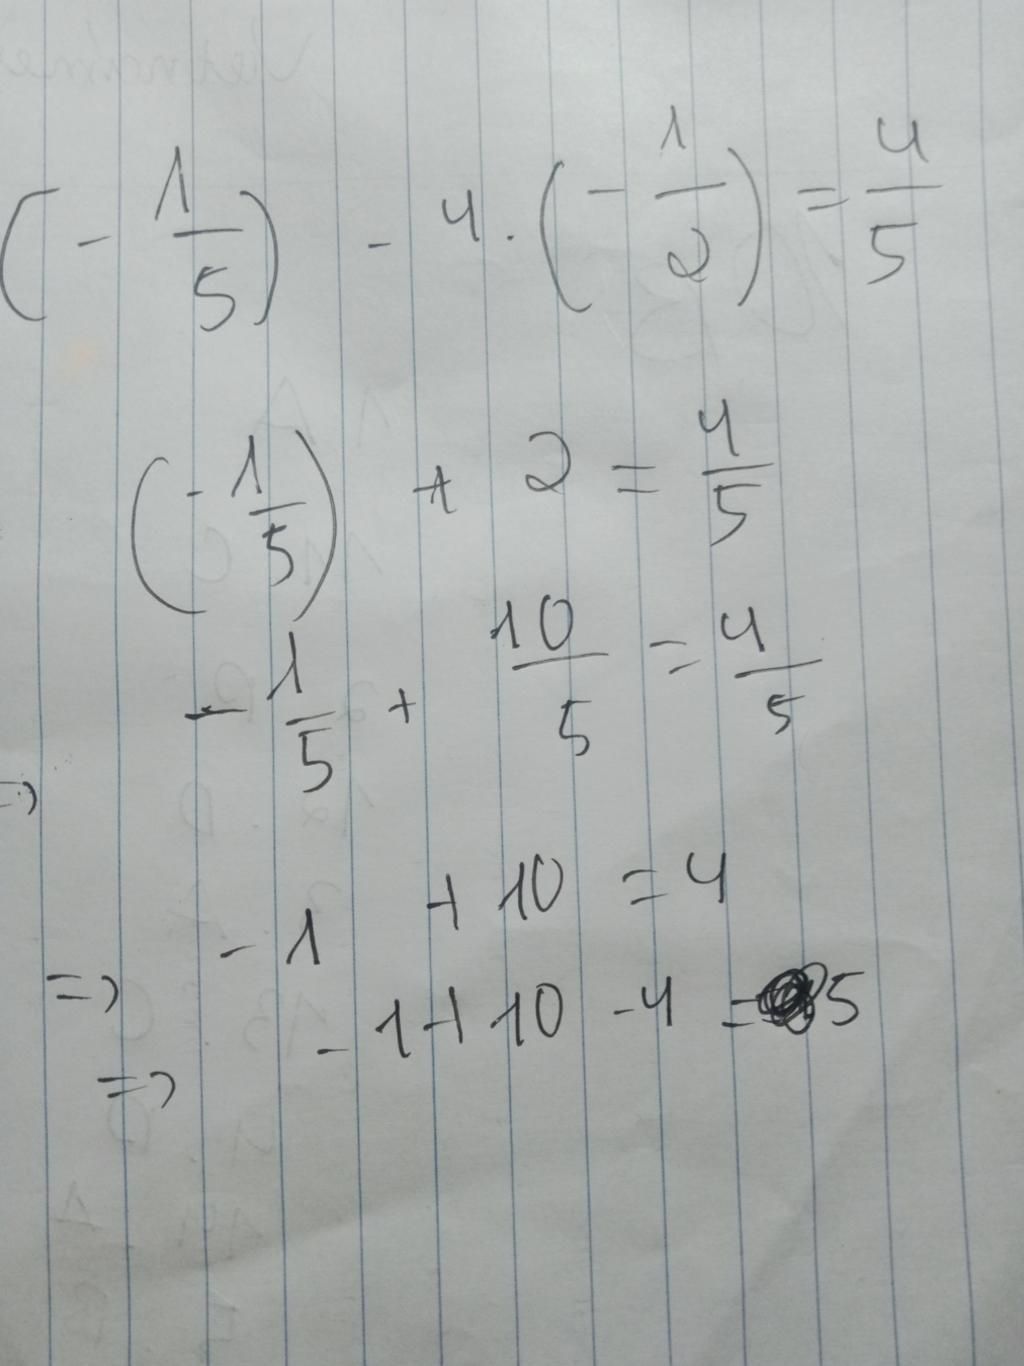 (- 1/5) - 4 . (- 1/2) = 4/5
(- 1/5) + 2 = 4/5
- 1/5 + 10/5 = 4/5
=>
- 1 + 10 = 4
=>
- 1 + 10 - 4 = 5
=>